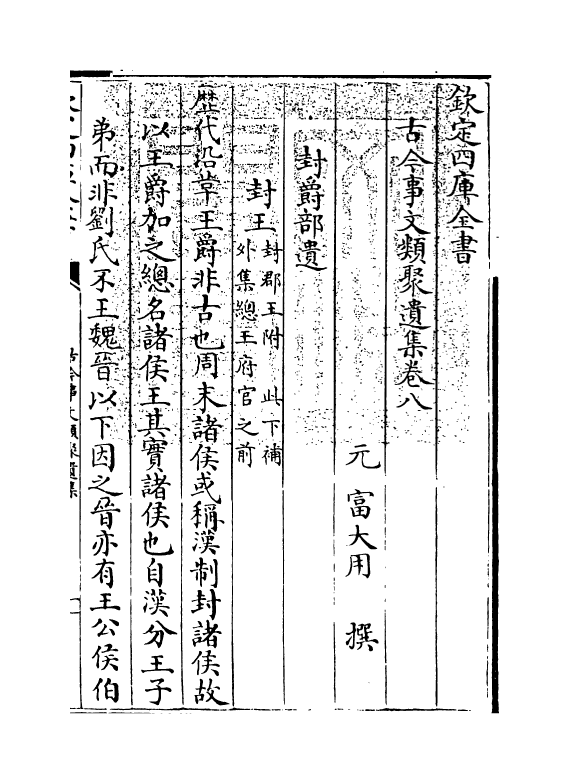 欽定四庫全書
古今事文類聚遺集卷八
元 富大用 撰
封爵部遺
封王封郡王附 此下補外集總王府官之前
歷代沿革王爵非古也周末諸侯或稱漢制封諸侯故
以王爵加之總名諸侯王其實諸侯也自漢分王子
弟而非劉氏不王魏晉以下因之晉亦有王公侯伯
古今事文類聚遺集